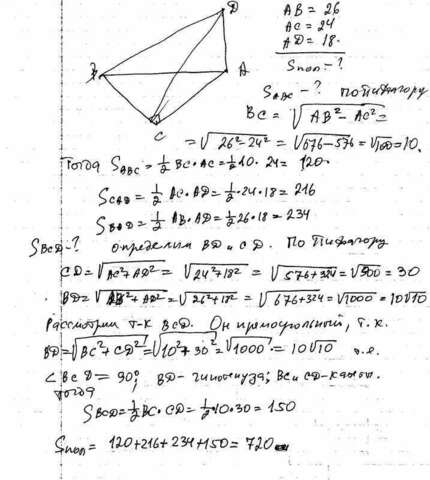 D
B
A
C
AB = 26
AC = 24
AD = 18
Sпол - ?
SABC - ? По Пифагору
BC = √AB² - AC² =
= √26² - 24² = √676 - 576 = √100 = 10.
Тогда SABC = 1/2 BC · AC = 1/2 10 · 24 = 120
SCAD = 1/2 AC · AD = 1/2 · 24 · 18 = 216
SBAD = 1/2 AB · AD = 1/2 26 · 18 = 234
SBCD - ? определим BD и CD. По Пифагору
CD = √AC² + AD² = √24² + 18² = √576 + 324 = √900 = 30
BD = √AB² + AD² = √26² + 18² = √676 + 324 = √1000 = 10√10
Рассмотрим т-к BCD. Он прямоугольный, т.к.
BD = √BC² + CD² = √10² + 30² = √1000 = 10√10 т.е.
∠BCD = 90°, BD - гипотенуза; BC и CD - катет.
тогда
SBCD = 1/2 BC · CD = 1/2 · 10 · 30 = 150
Sпол = 120 + 216 + 234 + 150 = 720